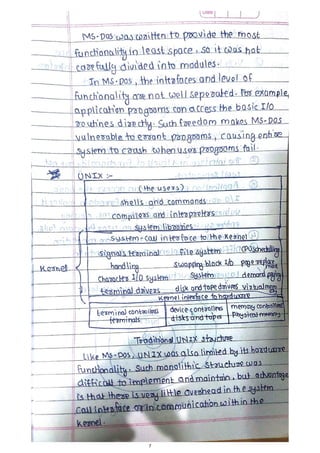 MS-Dos was written to provide the most
functionality in least space, so it was not
carefully divided into modules.
In MS-Dos, the intrfaces and level of
functionality are not well seperated. For example,
application programs can access the basic I/O
routines directly. Such freedom makes MS-DOS
vulnerable to errant programs, causing entire
system to crash when user programs fail.
UNIX :-
(the users)
shells and commands
compilers and interpreters
system libraries
system-call interface to the kernel
signals terminal file system CPU scheduling
handling swapping block I/O page replace
character I/O system system demand paging
terminal drivers disk and tape drivers virtual
Kernel
kernel interface to hardware
terminal controllers device controllers memory controllers
terminals disks and tapes Physical memory
Traditional UNIX Structure
Like MS-Dos, UNIX was also limited by its hardware
functionality. Such monolithic structure was
difficult to implement and maintain, but advantage
is that there is very little overhead in the system
call interface or in communication within the
kernel.